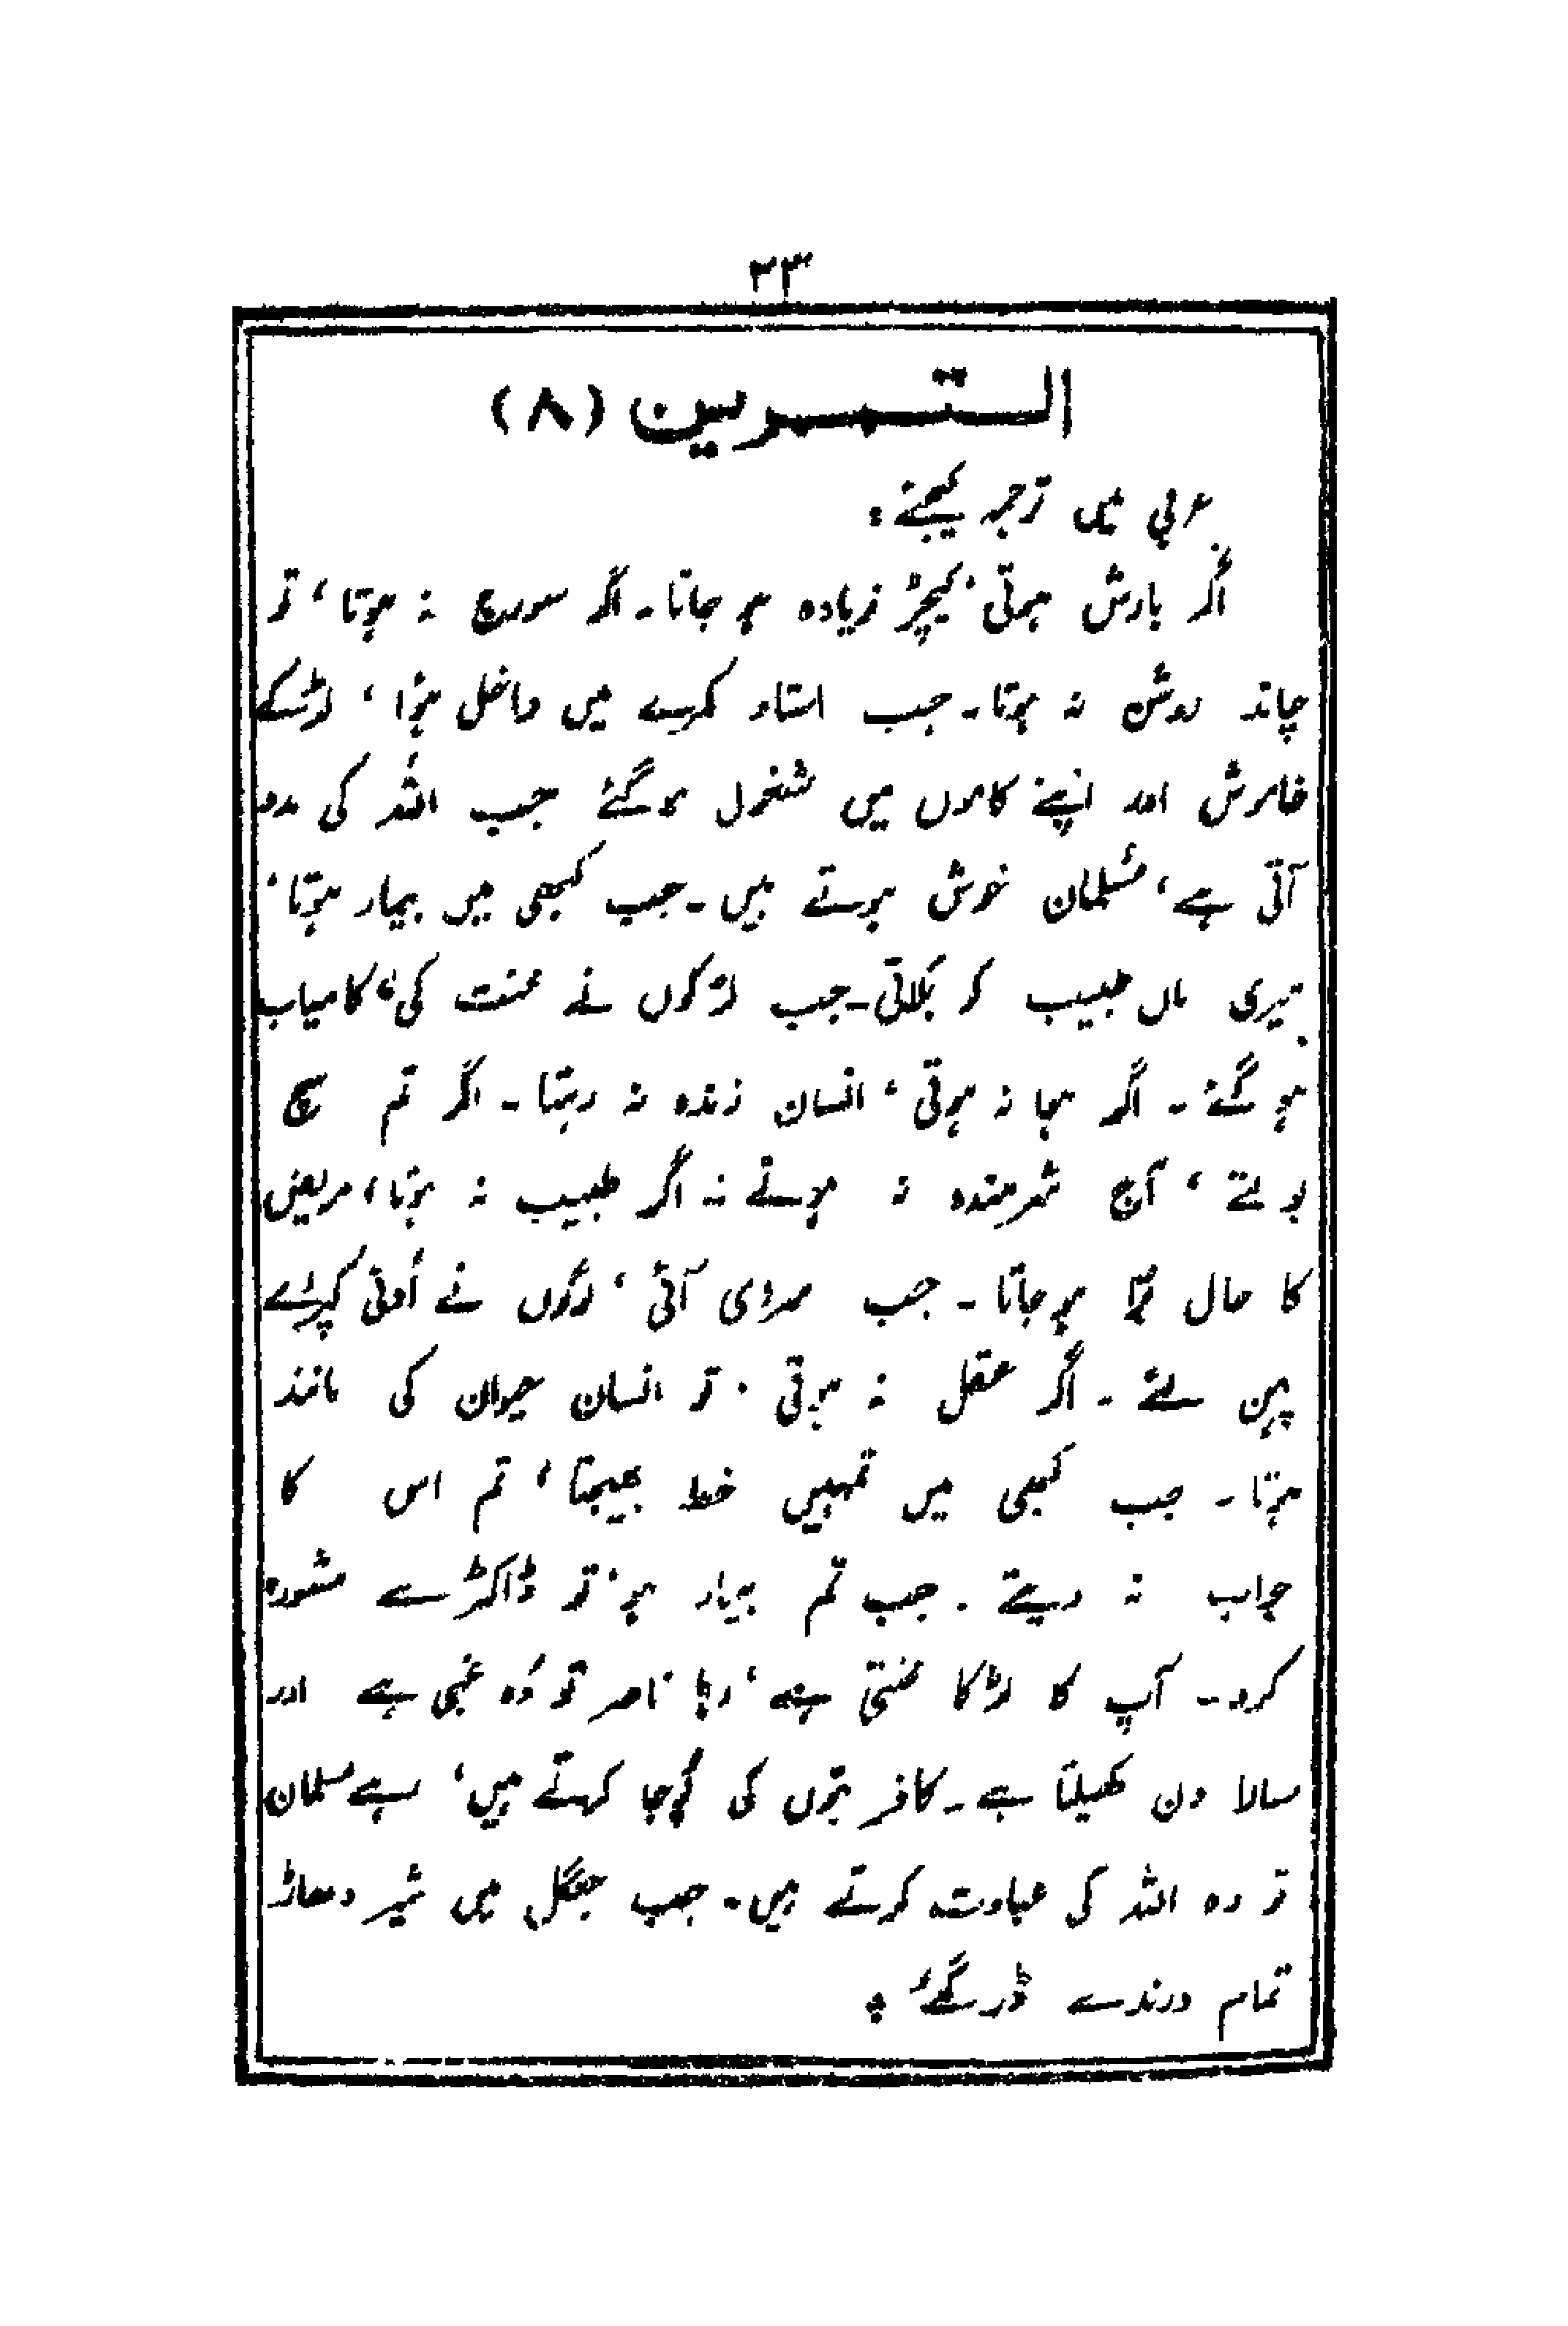 ٢٣
التمرين (٨)
عربی میں ترجمہ کیجئے :
اگر بارش ہوتی، کیچڑ زیادہ ہو جاتا۔ اگر سورج نہ ہوتا، تو
چاند روشن نہ ہوتا۔ جب استاد کمرے میں داخل ہؤا، لڑکے
خاموش اور اپنے کاموں میں مشغول ہو گئے جب اللہ کی مدد
آتی ہے، مسلمان خوش ہوتے ہیں۔ جب کبھی میں بیمار ہوتا،
میری ماں طبیب کو بُلاتی۔ جب لڑکوں نے محنت کی، کامیاب
ہو گئے۔ اگر ہوا نہ ہوتی، انسان زندہ نہ رہتا۔ اگر تم سچ
بولتے، آج شرمندہ نہ ہوتے۔ اگر طبیب نہ ہوتا، مریض
کا حال بُرا ہو جاتا۔ جب سردی آئی، لوگوں نے اُونی کپڑے
پہن لئے۔ اگر عقل نہ ہوتی، تو انسان حیوان کی مانند
ہوتا۔ جب کبھی میں تمہیں خط بھیجتا، تم اس کا
جواب نہ دیتے۔ جب تم بیمار ہو، تو ڈاکٹر سے مشورہ
کرو۔ آپ کا لڑکا محنتی ہے، رہا ناصر تو وُہ غبی ہے اور
سارا دن کھیلتا ہے۔ کافر بتوں کی پُوجا کرتے ہیں، رہے مسلمان
تو وہ اللہ کی عبادت کرتے ہیں۔ جب جنگل میں شیر دھاڑا
تمام درندے ڈر گئے ؛